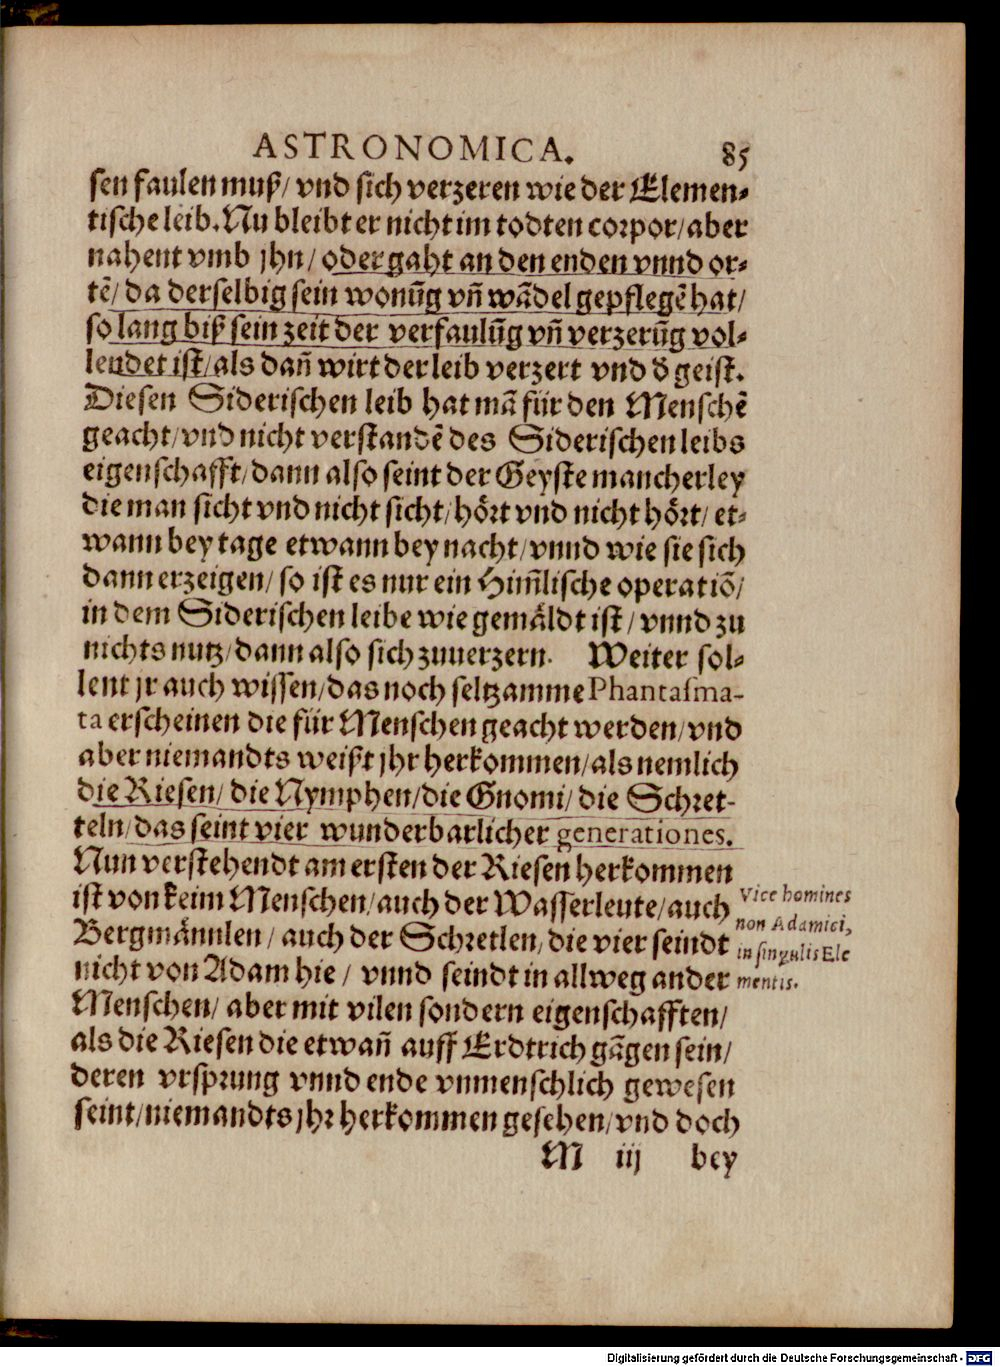 ASTRONOMICA. 85
sen faulen muß/ vnd sich verzeren wie der Elemen-
tische leib. Nu bleibt er nicht im todten corpor/ aber
nahent vmb jhn/ oder gaht an den enden vnnd or-
tẽ/ da derselbig sein wonũg vñ wãdel gepflegẽ hat/
so lang biß sein zeit der verfaulũg vñ verzerũg vol-
lendet ist/ als dañ wirt der leib verzert vnd đ geist.
Diesen Siderischen leib hat mã für den Menschẽ
geacht/ vnd nicht verstandẽ des Siderischen leibs
eigenschafft/ dann also seint der Geyste mancherley
die man sicht vnd nicht sicht/ hört vnd nicht hört/ et-
wann bey tage etwann bey nacht/ vnnd wie sie sich
dann erzeigen/ so ist es nur ein Him̃lische operatiõ/
in dem Siderischen leibe wie gemäldt ist/ vnnd zu
nichts nutz/ dann also sich zuuerzern. Weiter sol-
lent jr auch wissen/ das noch seltzamme Phantasma-
ta erscheinen die für Menschen geacht werden/ vnd
aber niemandts weißt jhr herkommen/ als nemlich
die Riesen/ die Nymphen/ die Gnomi/ die Schret-
teln/ das seint vier wunderbarlicher generationes.
Nun verstehendt am ersten der Riesen herkommen
ist von keim Menschen/ auch der Wasserleute/ auch
Bergmännlen/ auch der Schretlen/ die vier seindt
nicht von Adam hie/ vnnd seindt in allweg ander
Menschen/ aber mit vilen sondern eigenschafften/
als die Riesen die etwañ auff Erdtrich gãgen sein/
deren vrsprung vnnd ende vnmenschlich gewesen
seint/ niemandts jhr herkommen gesehen/ vnd doch
M iij bey
Vice homines
non Adamici,
in singulis Ele
mentis.
Digitalisierung gefördert durch die Deutsche Forschungsgemeinschaft - DFG